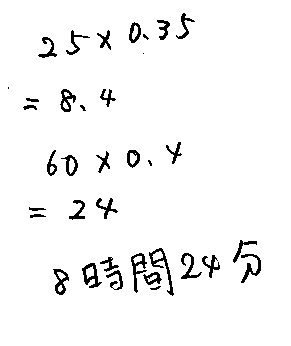 25×0.35
=8.4
60×0.4
=24
8時間24分